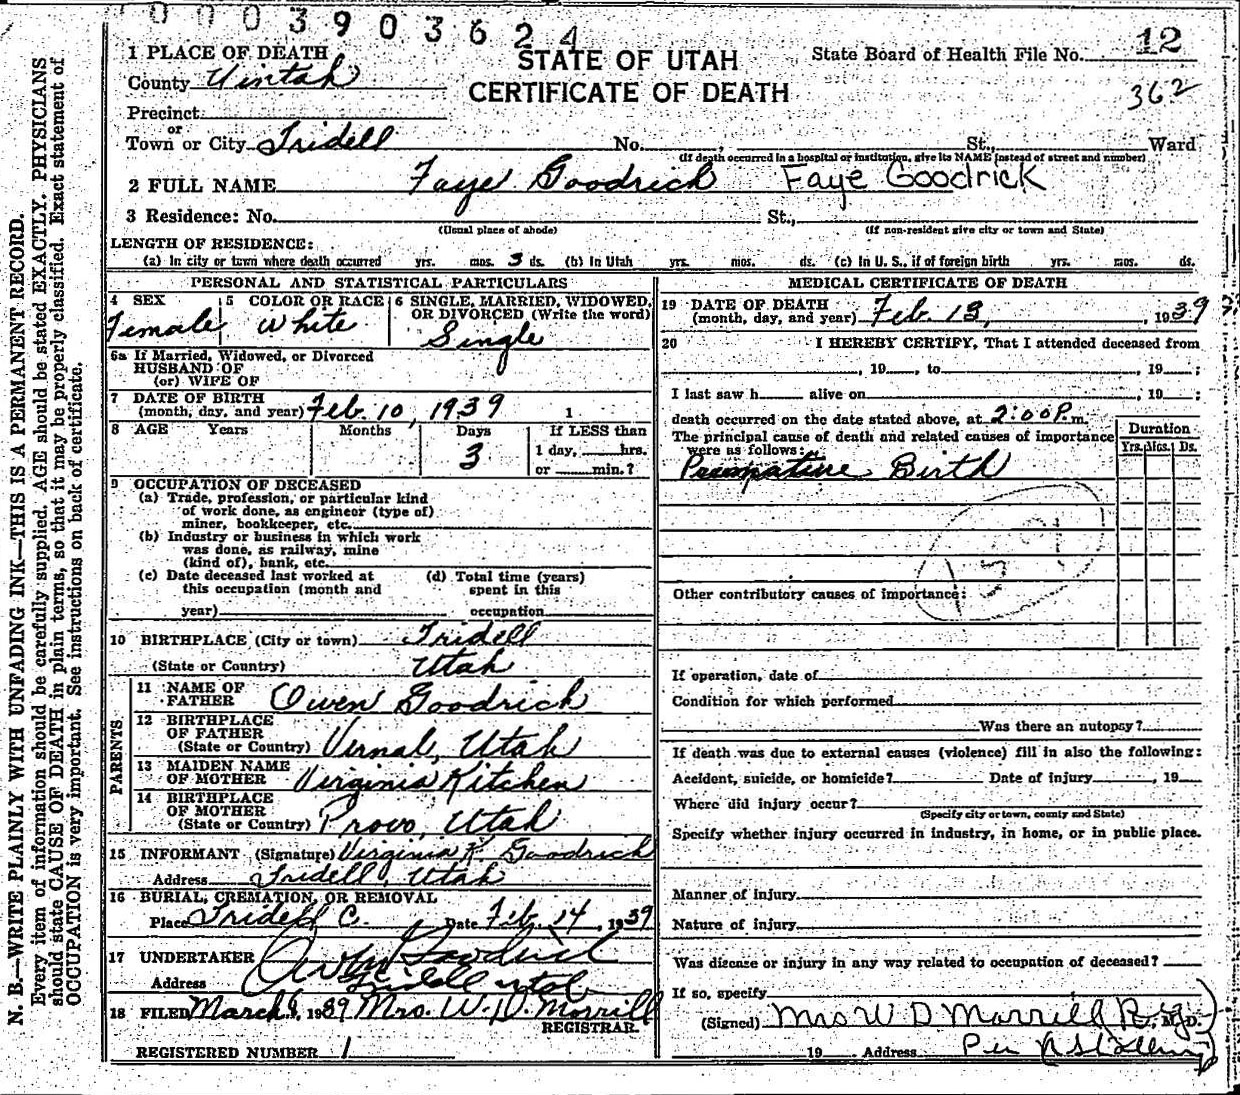 0003903624
1 PLACE OF DEATH
STATE OF UTAH
State Board of Health File No. 12
County Uintah
CERTIFICATE OF DEATH
362
Precinct
or
Town or City Tridell No. , St., Ward
(If death occurred in a hospital or institution, give its NAME instead of street and number)
2 FULL NAME Faye Goodrich Faye Goodrick
3 Residence: No. St.,
(Usual place of abode) (If non-resident give city or town and State)
LENGTH OF RESIDENCE:
(a) In city or town where death occurred yrs. mos. 3 ds. (b) In Utah yrs. mos. ds. (c) In U. S., if of foreign birth yrs. mos. ds.
PERSONAL AND STATISTICAL PARTICULARS
4 SEX Female
5 COLOR OR RACE White
6 SINGLE, MARRIED, WIDOWED,
OR DIVORCED (Write the word)
Single
6a If Married, Widowed, or Divorced
HUSBAND OF
(or) WIFE OF
7 DATE OF BIRTH
(month, day, and year) Feb. 10, 1939 1
8 AGE Years Months Days If LESS than
3 1 day, hrs.
or min.?
9 OCCUPATION OF DECEASED
(a) Trade, profession, or particular kind
of work done, as engineer (type of)
miner, bookkeeper, etc.
(b) Industry or business in which work
was done, as railway, mine
(kind of), bank, etc.
(c) Date deceased last worked at
this occupation (month and
year)
(d) Total time (years)
spent in this
occupation
10 BIRTHPLACE (City or town) Tridell
(State or Country) Utah
PARENTS
11 NAME OF
FATHER Owen Goodrich
12 BIRTHPLACE
OF FATHER
(State or Country) Vernal, Utah
13 MAIDEN NAME
OF MOTHER Virginia Kitchen
14 BIRTHPLACE
OF MOTHER
(State or Country) Provo, Utah
15 INFORMANT (Signature) Virginia K. Goodrich
Address Tridell, Utah
16 BURIAL, CREMATION, OR REMOVAL
Place Tridell C. Date Feb. 14, 1939
17 UNDERTAKER Owen Goodrich
Address Tridell Utah
18 FILED March 9, 1939 Mrs. W. D. Morrill
REGISTRAR.
REGISTERED NUMBER 1
MEDICAL CERTIFICATE OF DEATH
19 DATE OF DEATH
(month, day, and year) Feb. 13, , 1939
20 I HEREBY CERTIFY, That I attended deceased from
, 19 , to , 19 ;
I last saw h alive on , 19 ;
death occurred on the date stated above, at 2:00 P. m.
The principal cause of death and related causes of importance
were as follows:
Duration
Yrs. Mos. Ds.
Premature Birth
Other contributory causes of importance:
If operation, date of
Condition for which performed
Was there an autopsy?
If death was due to external causes (violence) fill in also the following:
Accident, suicide, or homicide? Date of injury , 19
Where did injury occur?
(Specify city or town, county and State)
Specify whether injury occurred in industry, in home, or in public place.
Manner of injury
Nature of injury
Was disease or injury in any way related to occupation of deceased?
If so, specify
(Signed) Mrs W D Morrill Reg. , M. D.
19 Address Per
N. B.—WRITE PLAINLY WITH UNFADING INK—THIS IS A PERMANENT RECORD.
Every item of information should be carefully supplied. AGE should be stated EXACTLY. PHYSICIANS
should state CAUSE OF DEATH in plain terms, so that it may be properly classified. Exact statement of
OCCUPATION is very important. See instructions on back of certificate.